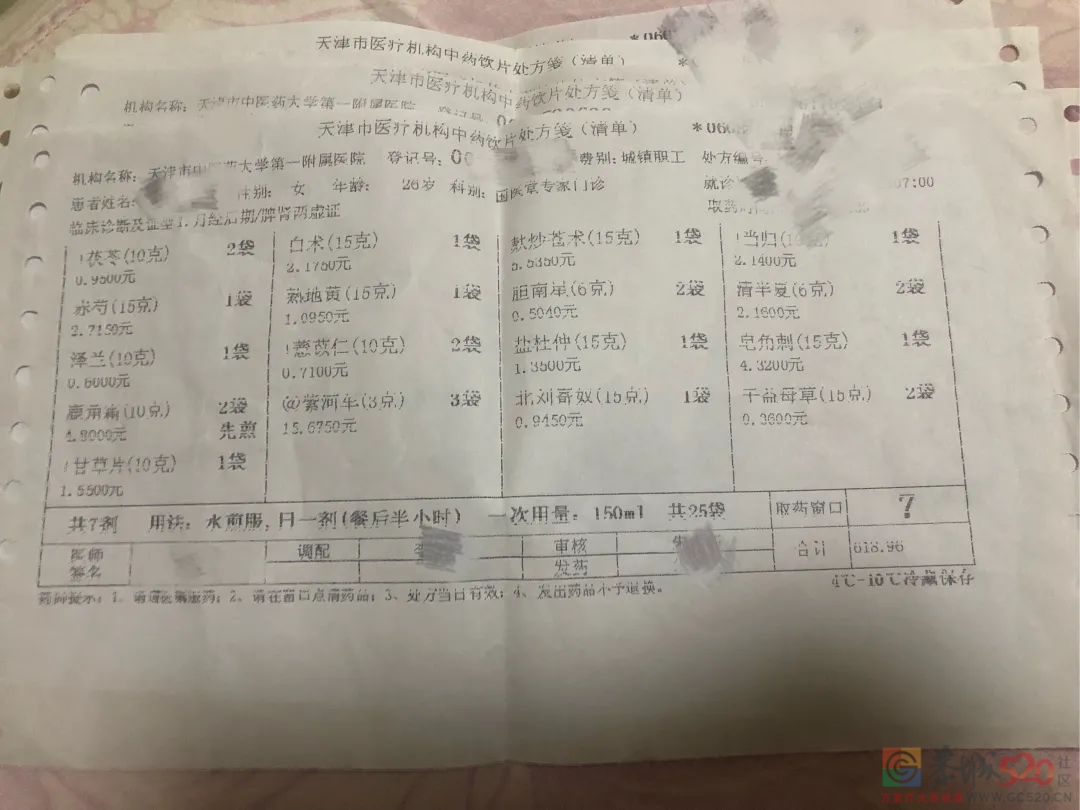 天津市医疗机构中药饮片处方笺（清单）
*060
天津市医疗机构中药饮片处方笺（清单）
机构名称: 天津市中医药大学第一附属医院 登记号
天津市医疗机构中药饮片处方笺（清单） *060
机构名称: 天津市中医药大学第一附属医院 登记号: 00 费别: 城镇职工 处方编号:
患者姓名: 性别: 女 年龄: 26岁 科别: 国医堂专家门诊 就诊 07:00
临床诊断及证型 1.月经后期/脾肾两虚证 取药时间
!茯苓(10克) 2袋 白术(15克) 1袋 麸炒苍术(15克) 1袋 !当归(10克) 1袋
0.9500元 2.1750元 5.5350元 2.1400元
赤芍(15克) 1袋 熟地黄(15克) 1袋 胆南星(6克) 2袋 清半夏(6克) 2袋
2.7150元 1.0950元 0.5040元 2.1600元
泽兰(10克) 1袋 !薏苡仁(10克) 2袋 盐杜仲(15克) 1袋 皂角刺(15克) 1袋
0.6000元 0.7100元 1.3500元 4.3200元
鹿角霜(10克) 2袋 @紫河车(3克) 3袋 北刘寄奴(15克) 1袋 干益母草(15克) 2袋
4.8000元 先煎 15.6750元 0.9450元 0.3600元
!甘草片(10克) 1袋
1.5500元
共7剂 用法: 水煎服, 日一剂(餐后半小时) 一次用量: 150ml 共25袋 取药窗口 7
医师签名 调配 审核 合计 618.96
发药
4℃-10℃冷藏保存
药师提示: 1、请遵医嘱服药; 2、请在窗口点清药品; 3、处方当日有效; 4、发出药品不予退换。
520社区
WWW.GC520.CN